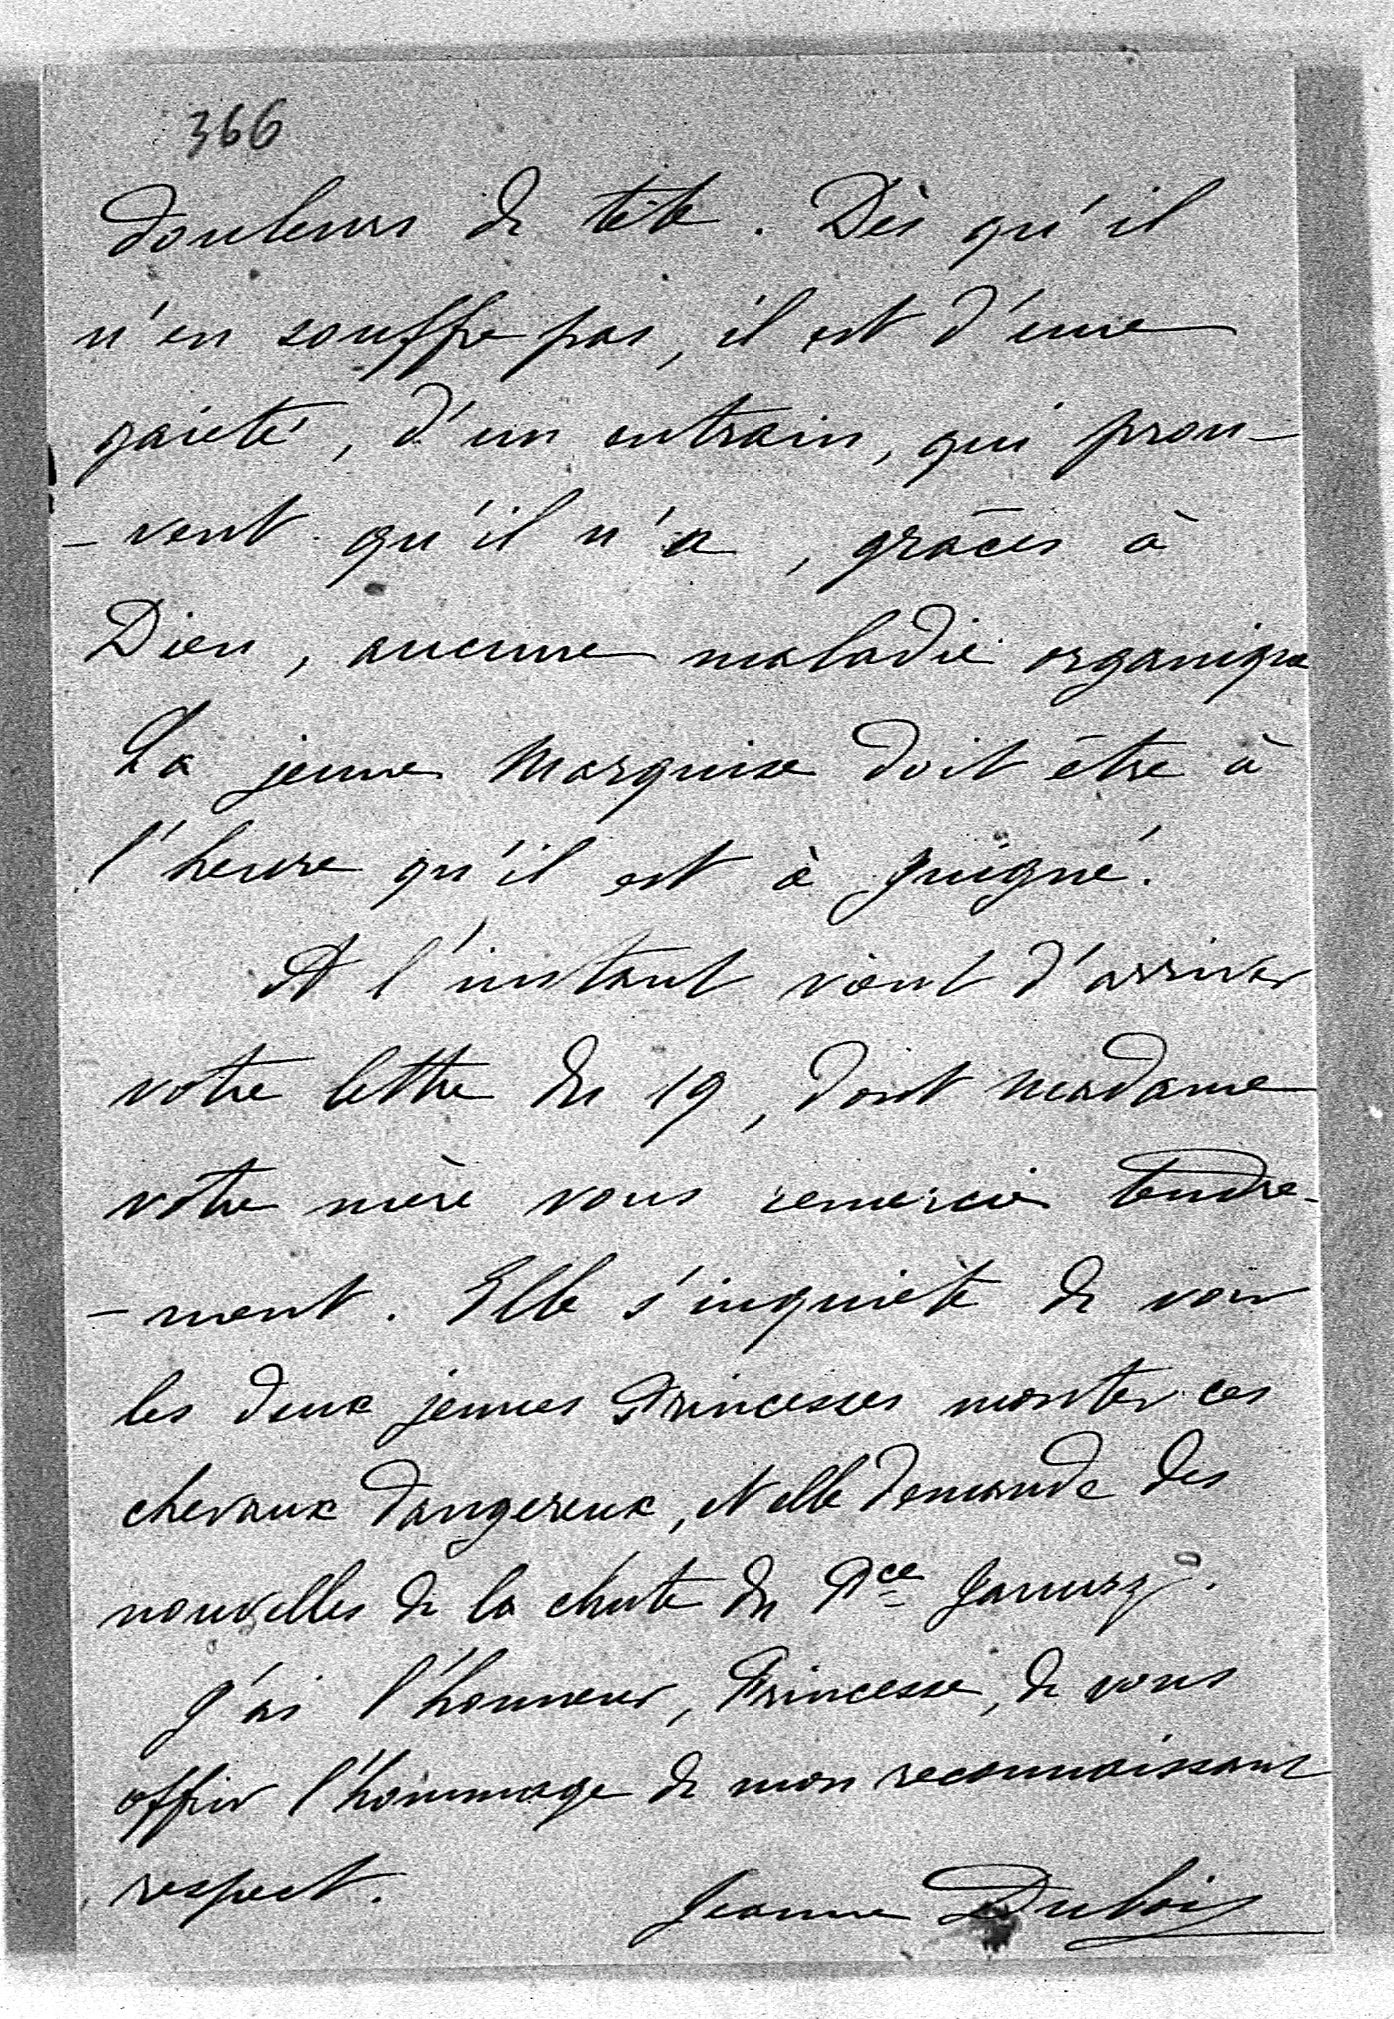 366
douleurs de tête. Dès qu'il
n'en souffre pas, il est d'une
gaieté, d'un entrain, qui prou-
-vent qu'il n'a, grâces à
Dieu, aucune maladie organique
La jeune Marquise doit être à
l'heure qu'il est à Juigné.
A l'instant vient d'arriver
votre lettre du 19, dont Madame
votre mère vous remercie tendre-
-ment. Elle s'inquiète de voir
les deux jeunes Princesses monter ces
chevaux dangereux, et elle demande des
nouvelles de la chute du Pce Janusz.
J'ai l'honneur, Princesse, de vous
offrir l'hommage de mon reconnaissant
respect.
Jeanne Dubois